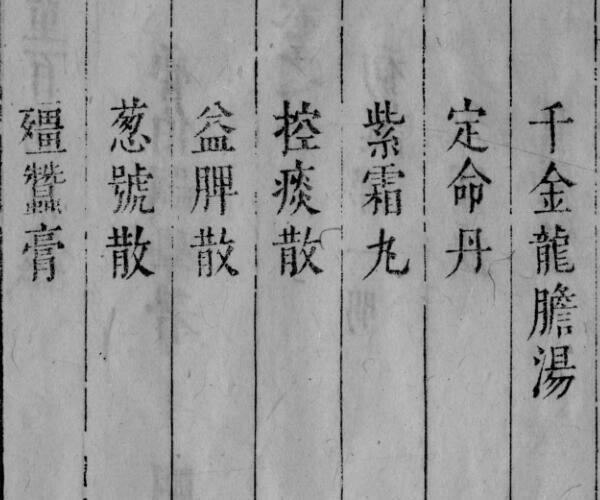 千金龍膽湯
定命丹
紫霜丸
控痰散
益脾散
葱號散
殭蠶膏